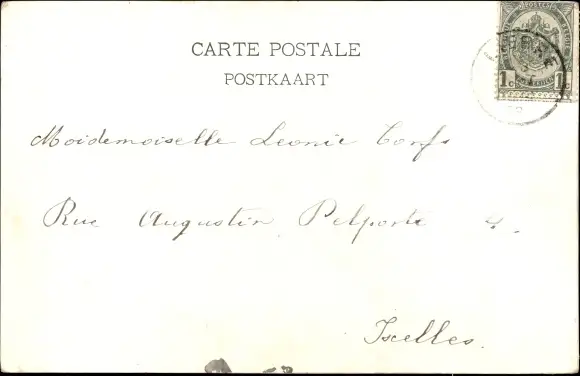 CARTE POSTALE
POSTKAART
1c 1c
Moidemoiselle Leonie Corfs
Rue Augustin Pelporte 4.
Ixelles.